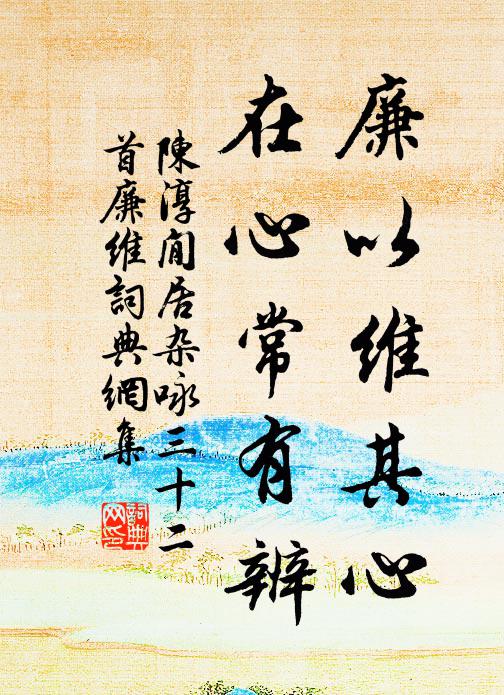 廉以維其心
在心常有辨
陳淳閒居杂咏三十二
首廉維詞典網集